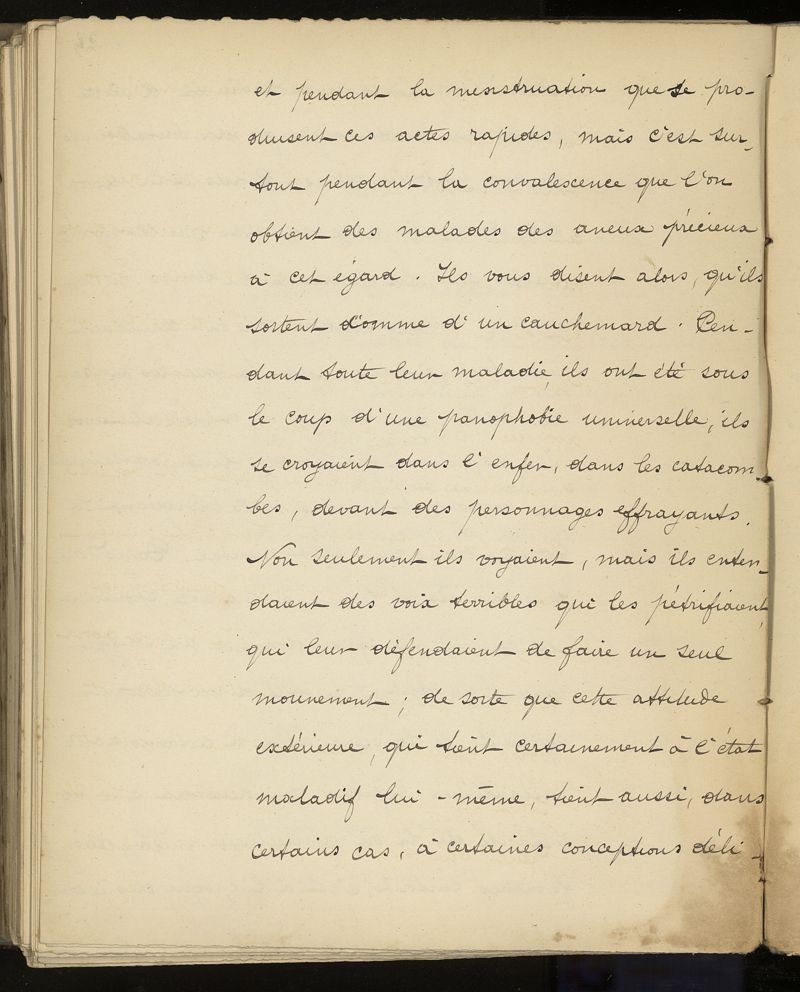 et pendant la menstruation que se pro-
duisent ces actes rapides, mais c'est sur-
tout pendant la convalescence que l'on
obtient des malades des aveux précieux
à cet égard. Ils vous disent alors, qu'ils
sortent comme d'un cauchemard. Pen-
dant toute leur maladie, ils ont été sous
le coup d'une panophobie universelle, ils
se croyaient dans l'enfer, dans les catacom-
bes, devant des personnages effrayants.
Non seulement ils voyaient, mais ils enten-
daient des voix terribles qui les pétrifiaient,
qui leur défendaient de faire un seul
mouvement; de sorte que cette attitude
extérieure, qui tient certainement à l'état
maladif lui-même, tient aussi, dans
certains cas, à certaines conceptions déli-